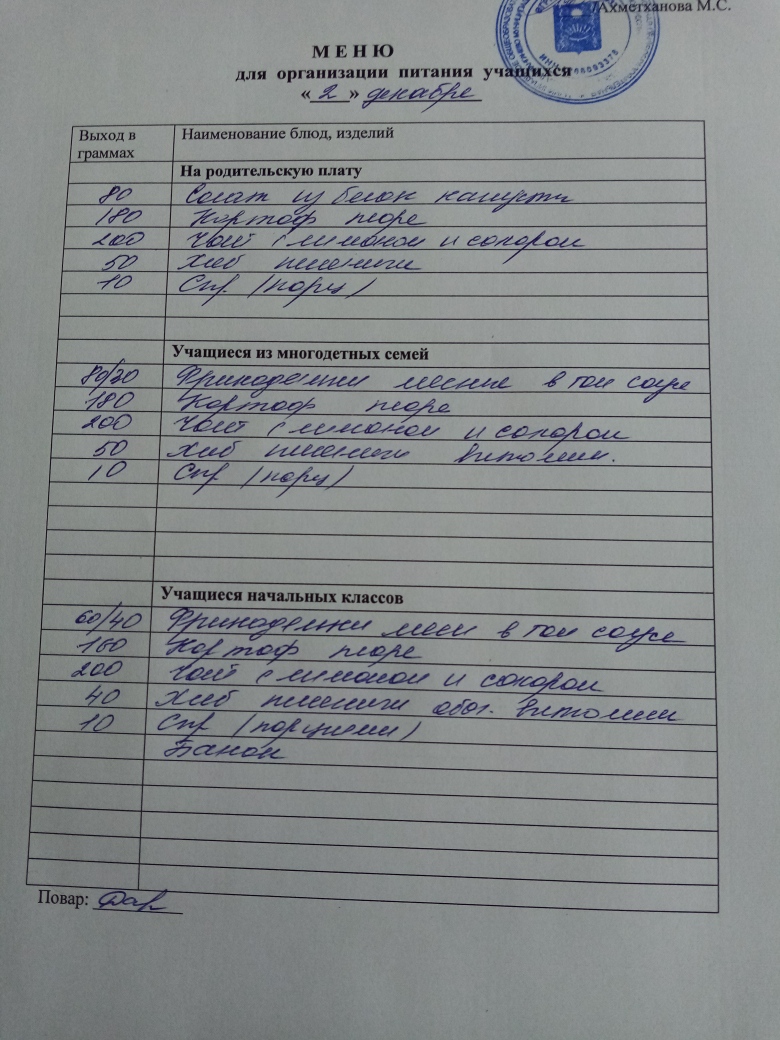 /Ахметханова М.С.
МЕНЮ
для организации питания учащихся
« 2 » декабря
Выход в граммах Наименование блюд, изделий
На родительскую плату
80 Салат из белок капусты
180 Картоф пюре
200 Чай с лимоном и сахаром
50 Хлеб пшенич
10 Сыр (порц)
Учащиеся из многодетных семей
80/20 Фрикадельки мясные в том соусе
180 Картоф пюре
200 Чай с лимоном и сахаром
50 Хлеб пшенич витамин.
10 Сыр (порц)
Учащиеся начальных классов
60/40 Фрикадельки мясн в том соусе
160 Картоф пюре
200 Чай с лимоном и сахаром
40 Хлеб пшенич обог. витамин
10 Сыр (порциями)
Банан
Повар: